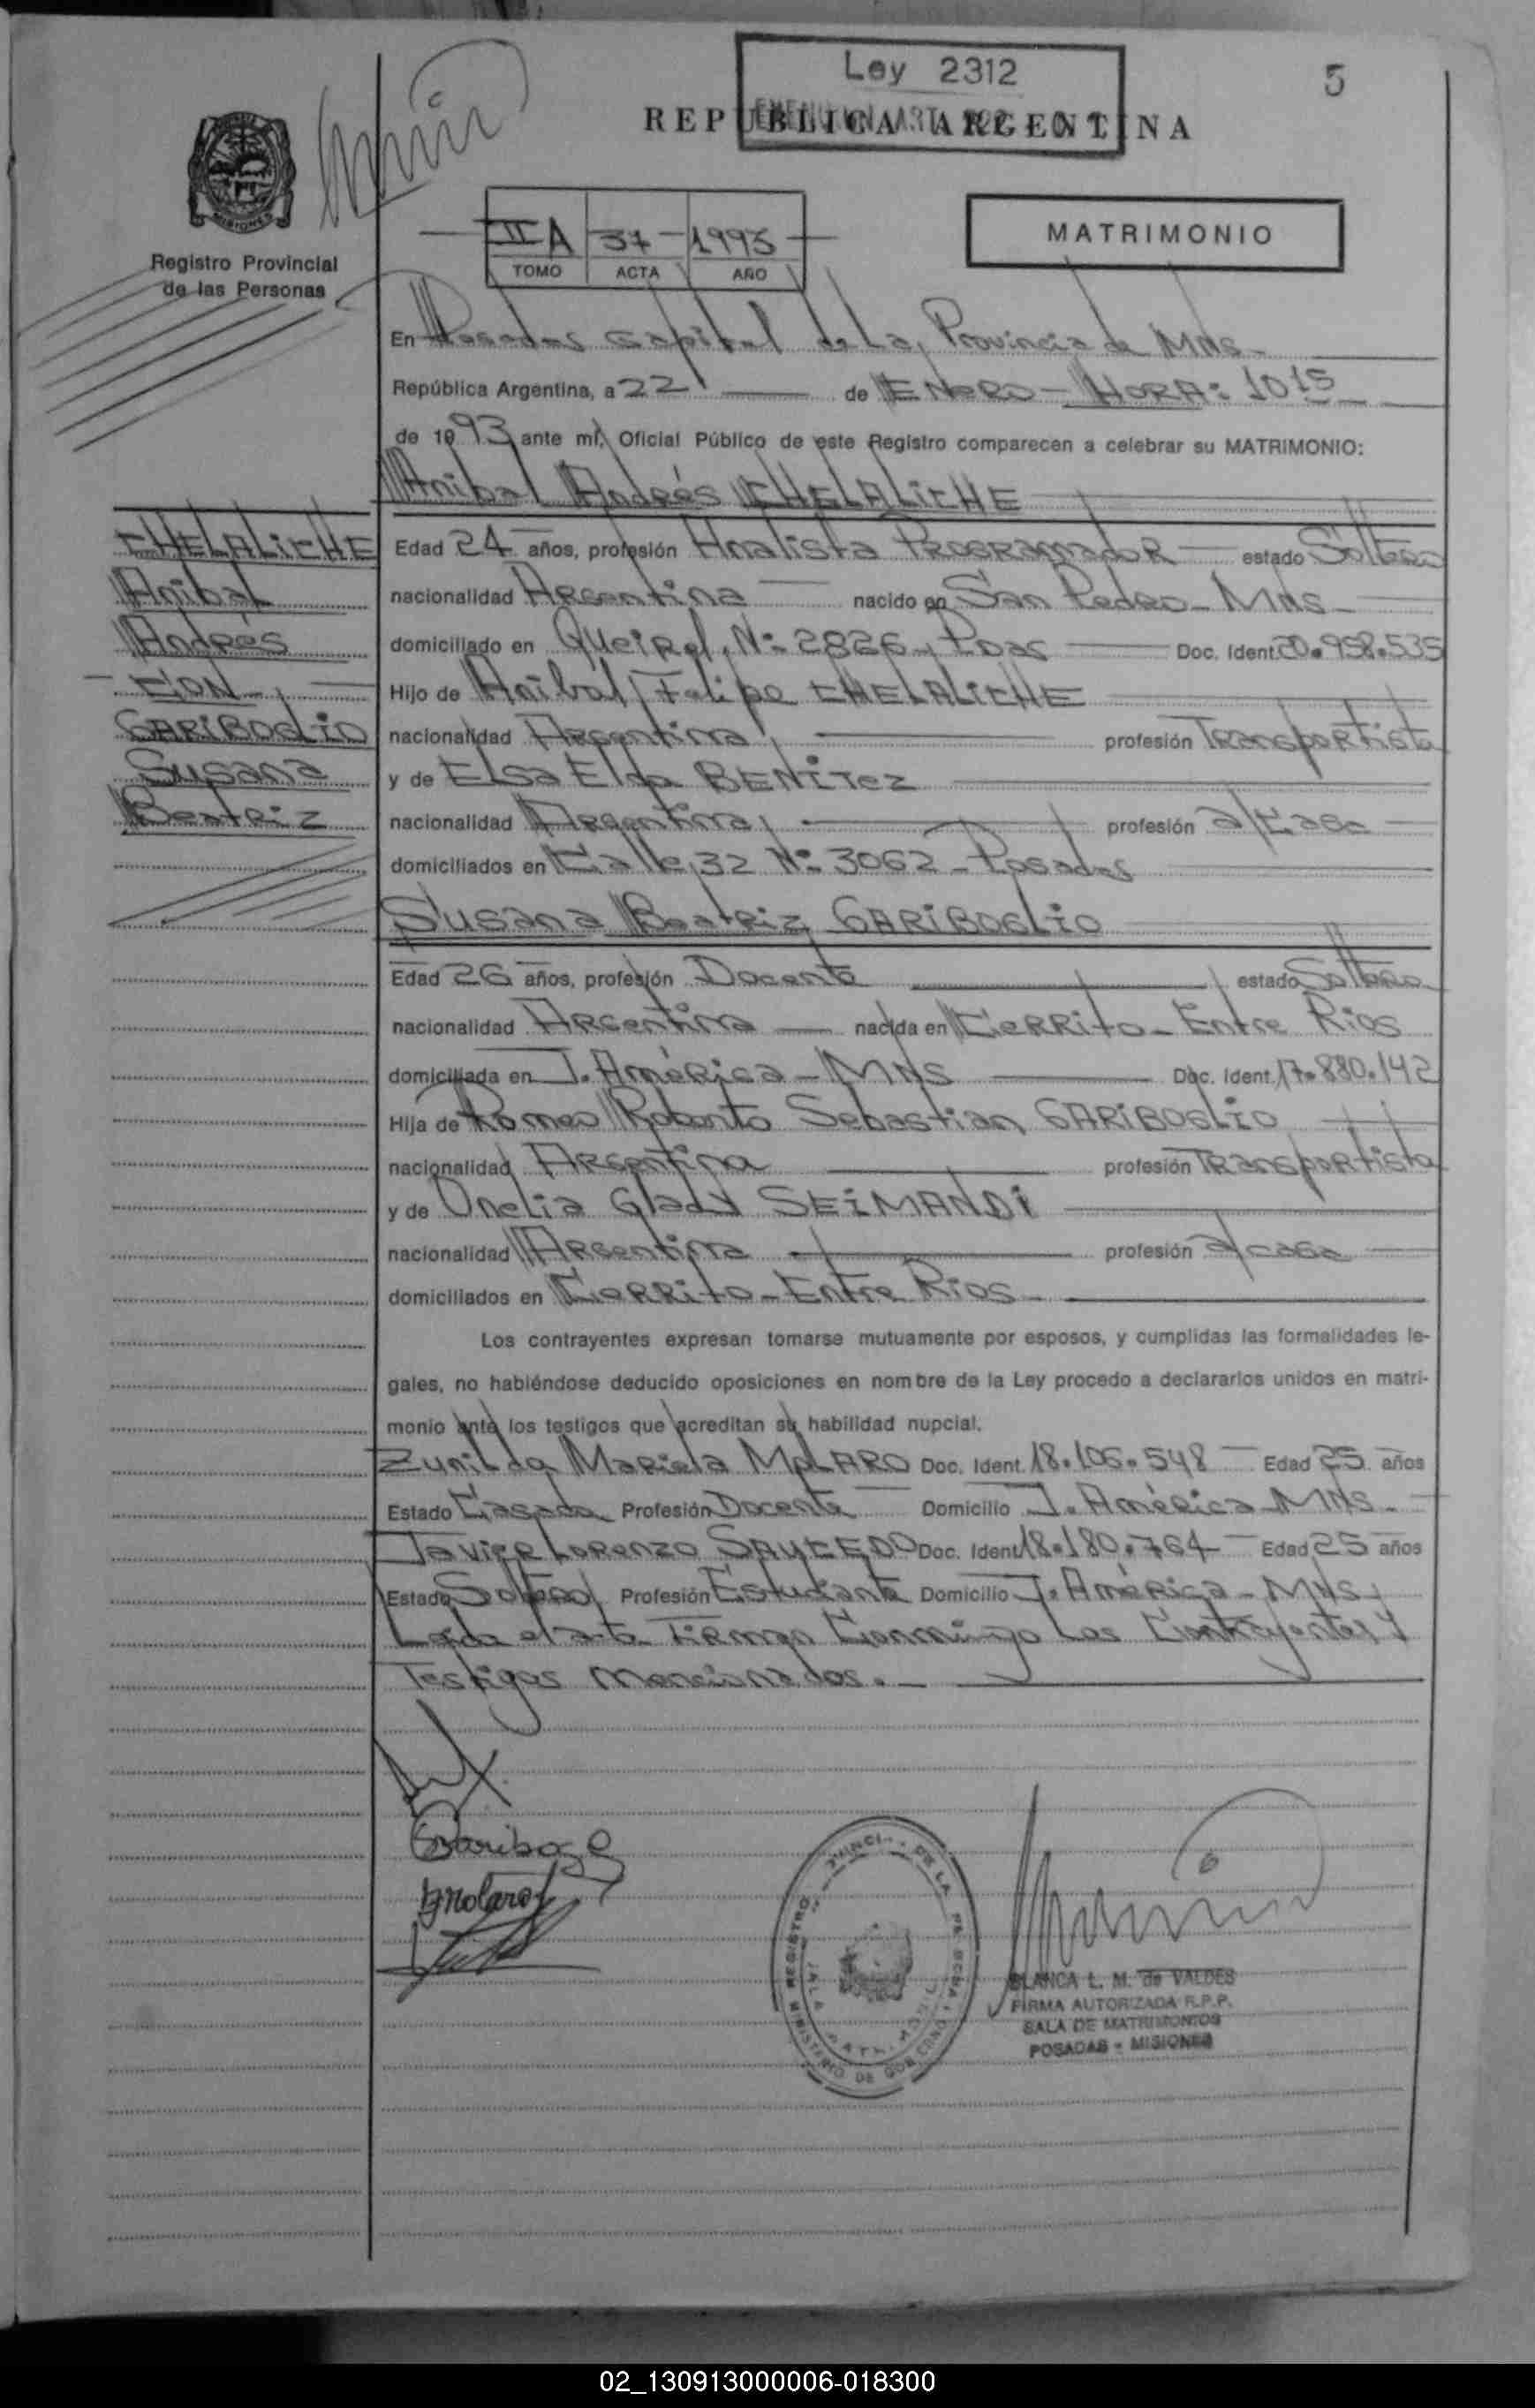 Ley 2312
5
REPUBLICA ARGENTINA
MISIONES
Registro Provincial
de las Personas
II A 37 - 1993
TOMO ACTA AÑO
MATRIMONIO
En Posadas Capital de La Provincia de MNS-
República Argentina, a 22 de ENERO - HORA: 10 15
de 1993 ante mí, Oficial Público de este Registro comparecen a celebrar su MATRIMONIO:
Anibal Andrés CHELALICHE
CHELALICHE
Anibal
Andres
CON
GARIBOGLIO
Susana
Beatriz
Edad 24 años, profesión Analista PROGRAMADOR estado Soltero
nacionalidad Argentina nacido en San Pedro - MNS -
domiciliado en Queirel, Nº 2826 - Pdas Doc. Ident. 20.958.535
Hijo de Anibal Felipe CHELALICHE
nacionalidad Argentina profesión Transportista
y de Elsa Elda BENITEZ
nacionalidad Argentina profesión a/casa
domiciliados en Calle 32 Nº 3062 - Posadas
Susana Beatriz GARIBOGLIO
Edad 26 años, profesión Docente estado Soltera
nacionalidad Argentina nacida en Cerrito - Entre Rios
domiciliada en J. América - MNS Doc. Ident. 17.880.142
Hija de Romeo Roberto Sebastian GARIBOGLIO
nacionalidad Argentina profesión Transportista
y de Onelia Glady SEIMANDI
nacionalidad Argentina profesión a/casa
domiciliados en Cerrito - Entre Rios -
Los contrayentes expresan tomarse mutuamente por esposos, y cumplidas las formalidades le-
gales, no habiéndose deducido oposiciones en nombre de la Ley procedo a declararlos unidos en matri-
monio ante los testigos que acreditan su habilidad nupcial.
Zunilda Mariela MOLARO Doc. Ident. 18.106.548 Edad 25 años
Estado Casada Profesión Docente Domicilio J. América - MNS -
Javier Lorenzo SAUCEDO Doc. Ident. 18.180.764 Edad 25 años
Estado Soltero Profesión Estudiante Domicilio J. América - MNS,
Leída el acta Firman Conmigo Los Contrayentes y
Testigos mencionados. -
REGISTRO DE LA
MINISTERIO DE GOBIERNO
BLANCA L. M. de VALDES
FIRMA AUTORIZADA R.P.P.
SALA DE MATRIMONIOS
POSADAS - MISIONES
02_130913000006-018300